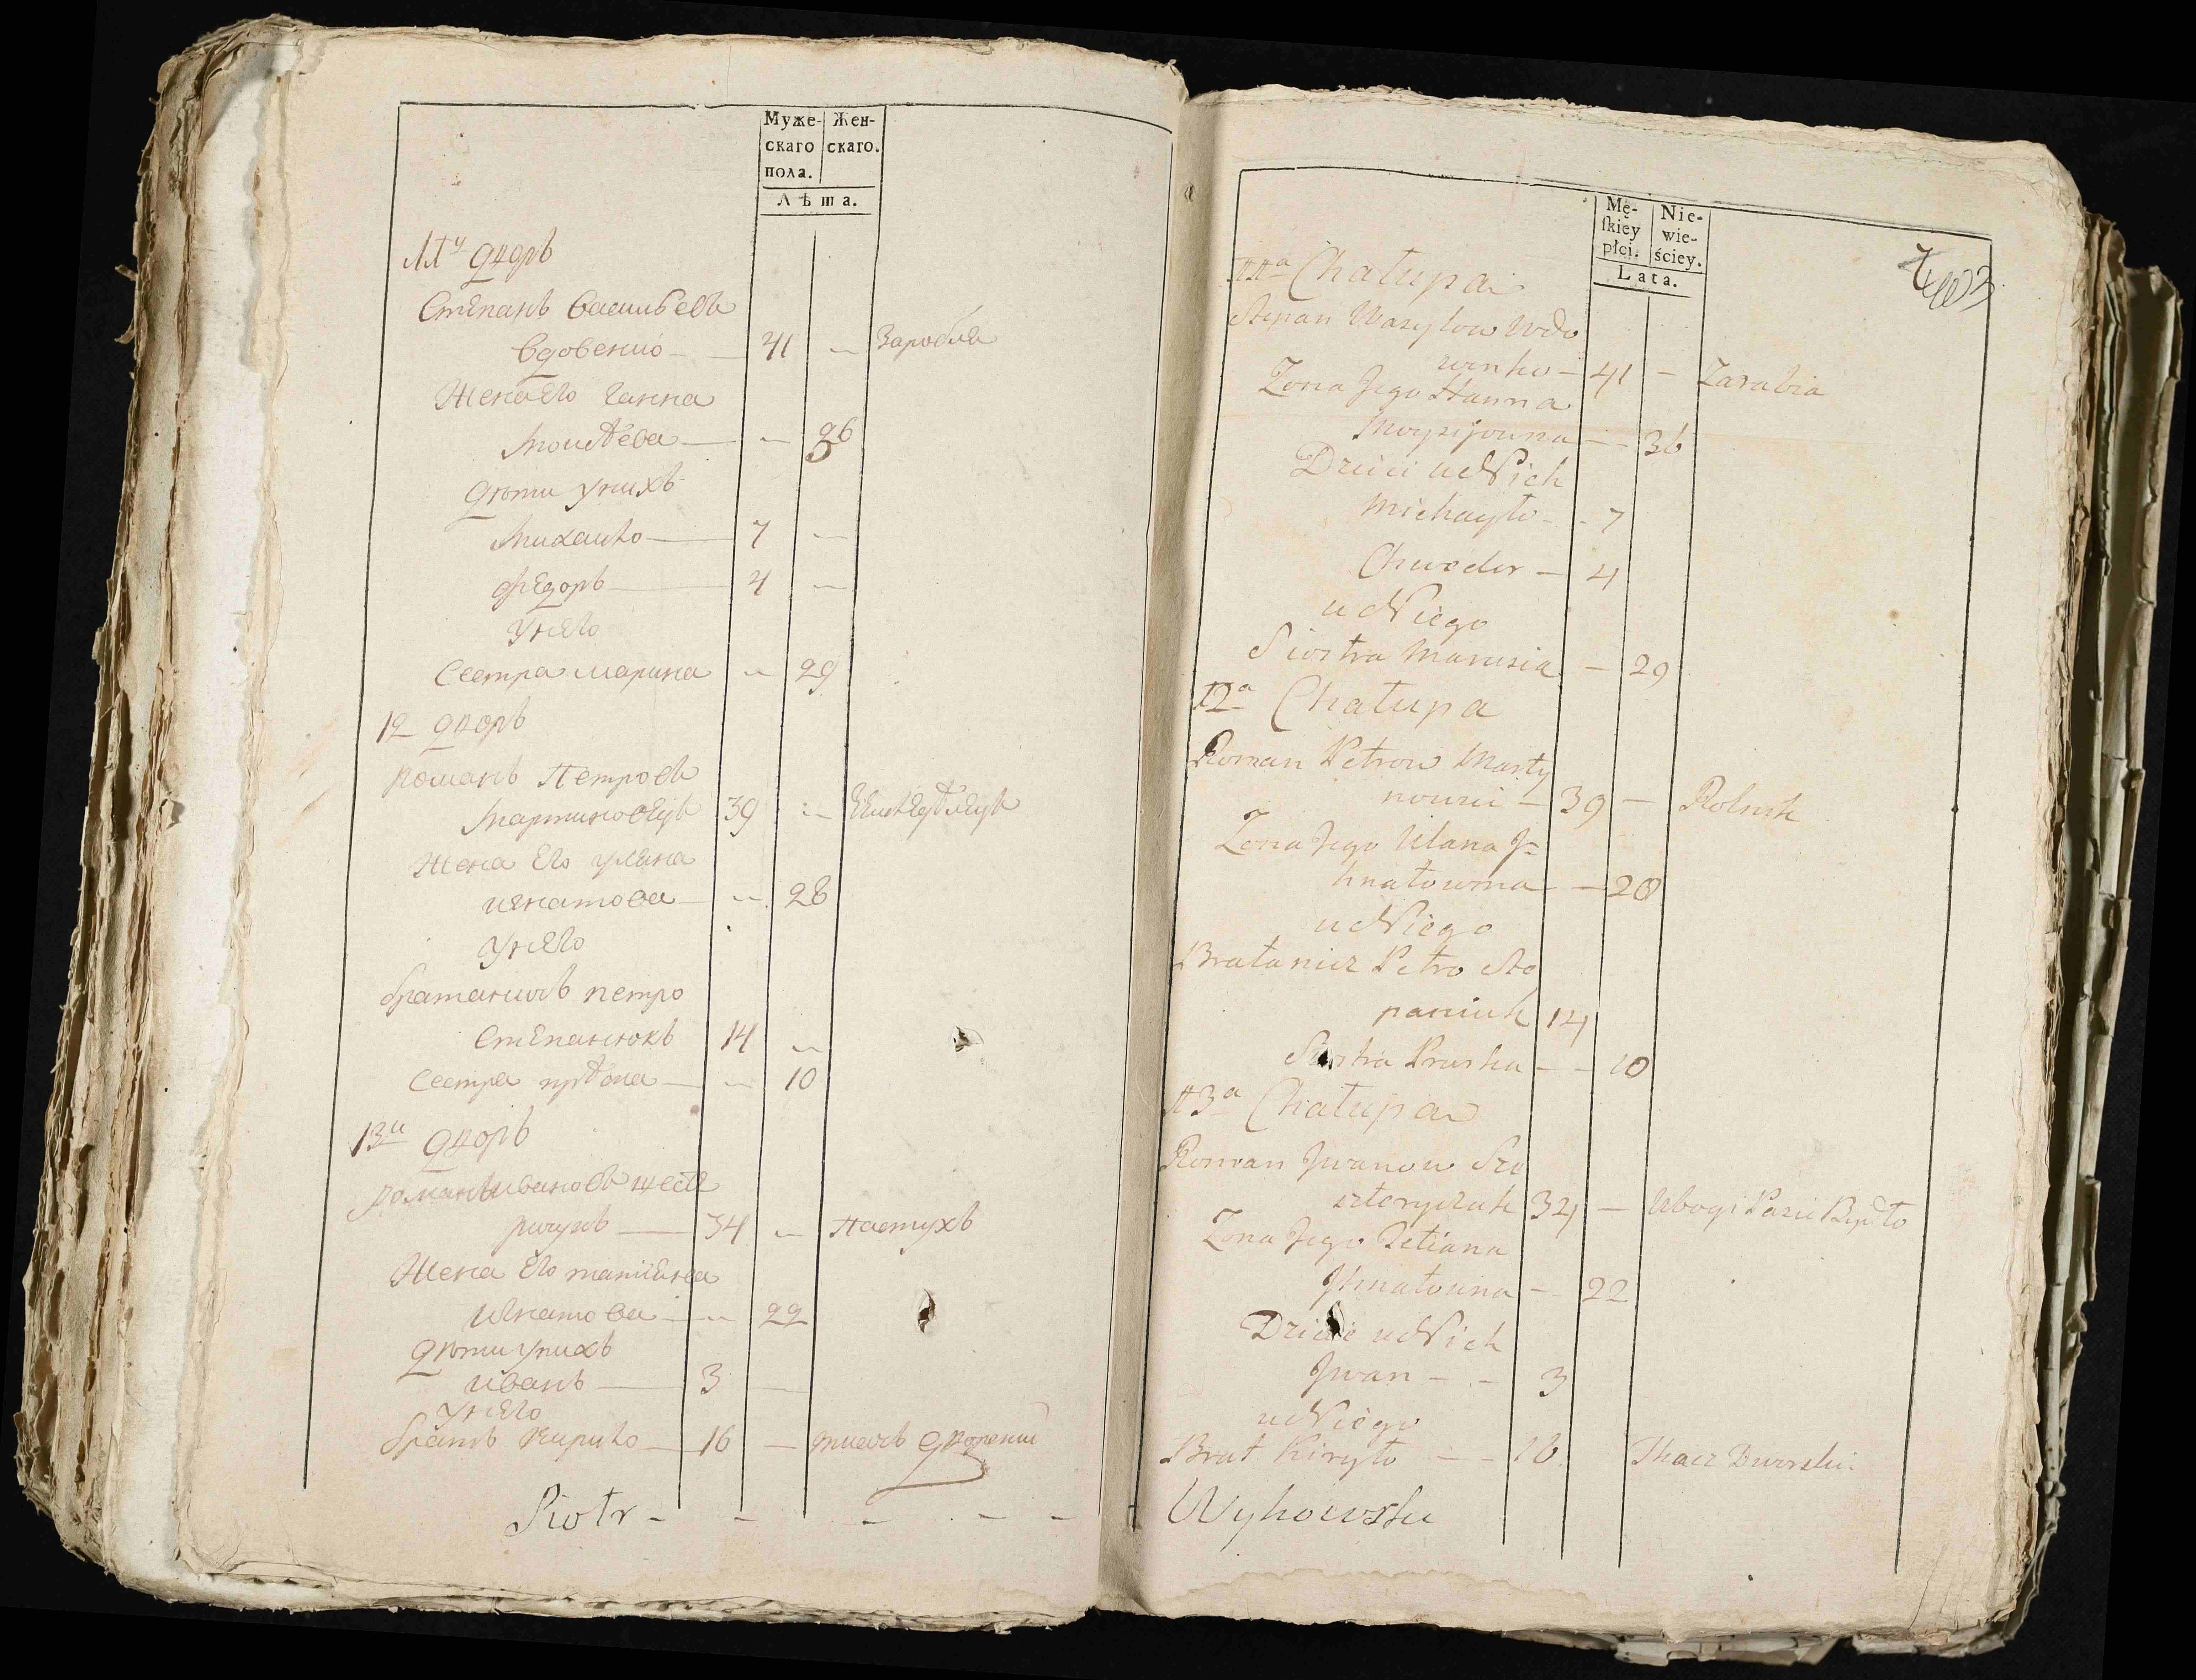 Муже- Жен-
скаго скаго.
пола.
Лѣта.
11й дворъ
Степанъ Васильевъ
Вдовенко — 41 — Заробля
Жена его Ганна
Моисѣева — — 36
Дѣти у нихъ
Михайло — 7 —
Федоръ — 4 —
У него
Сестра Марина — 29
12 дворъ
Романъ Петровъ
Мартиновецъ 39 —
Жена его Уляна
Игнатова — — 28
У него
братаничъ Петро
Степанюкъ 14 —
Сестра — — 10
13й дворъ
Романъ Ивановъ
34 — Пастухъ
Жена его Татіяна
Игнатова — — 22
Дѣти у нихъ
Иванъ — 3 —
У него
братъ Кирило — 16 — ткачъ дворский
Piotr - - - - -
Mę- Nie-
skiey wie-
płci. ściey.
Lata.
11a Chałupa
Stepan Wasylow Wdo
wenko — 41 — Zarabia
Zona Jego Hanna
Moysijowna — — 36
Dzieci u Nich
Michayło - - 7
Chwedor — 4
u Niego
Siostra Marusia — 29
12a Chałupa
Roman Petrow Marty
nowiec — 39 — Rolnik
Zona Jego Ulana J=
hnatowna — — 28
u Niego
Bratanicz Petro Ste
paniuk 14
Siostra Pruska - - 10
13a Chałupa
Roman Jwanow Sze
szteryczuk 34 — Ubogi Pasie Bydło
Zona Jego Tetiana
Jhnatowna - - 22
Dzieci u Nich
Jwan - - 3
u Niego
Brat Kiryło - - 16 Tkacz Dworski
Wyhowski